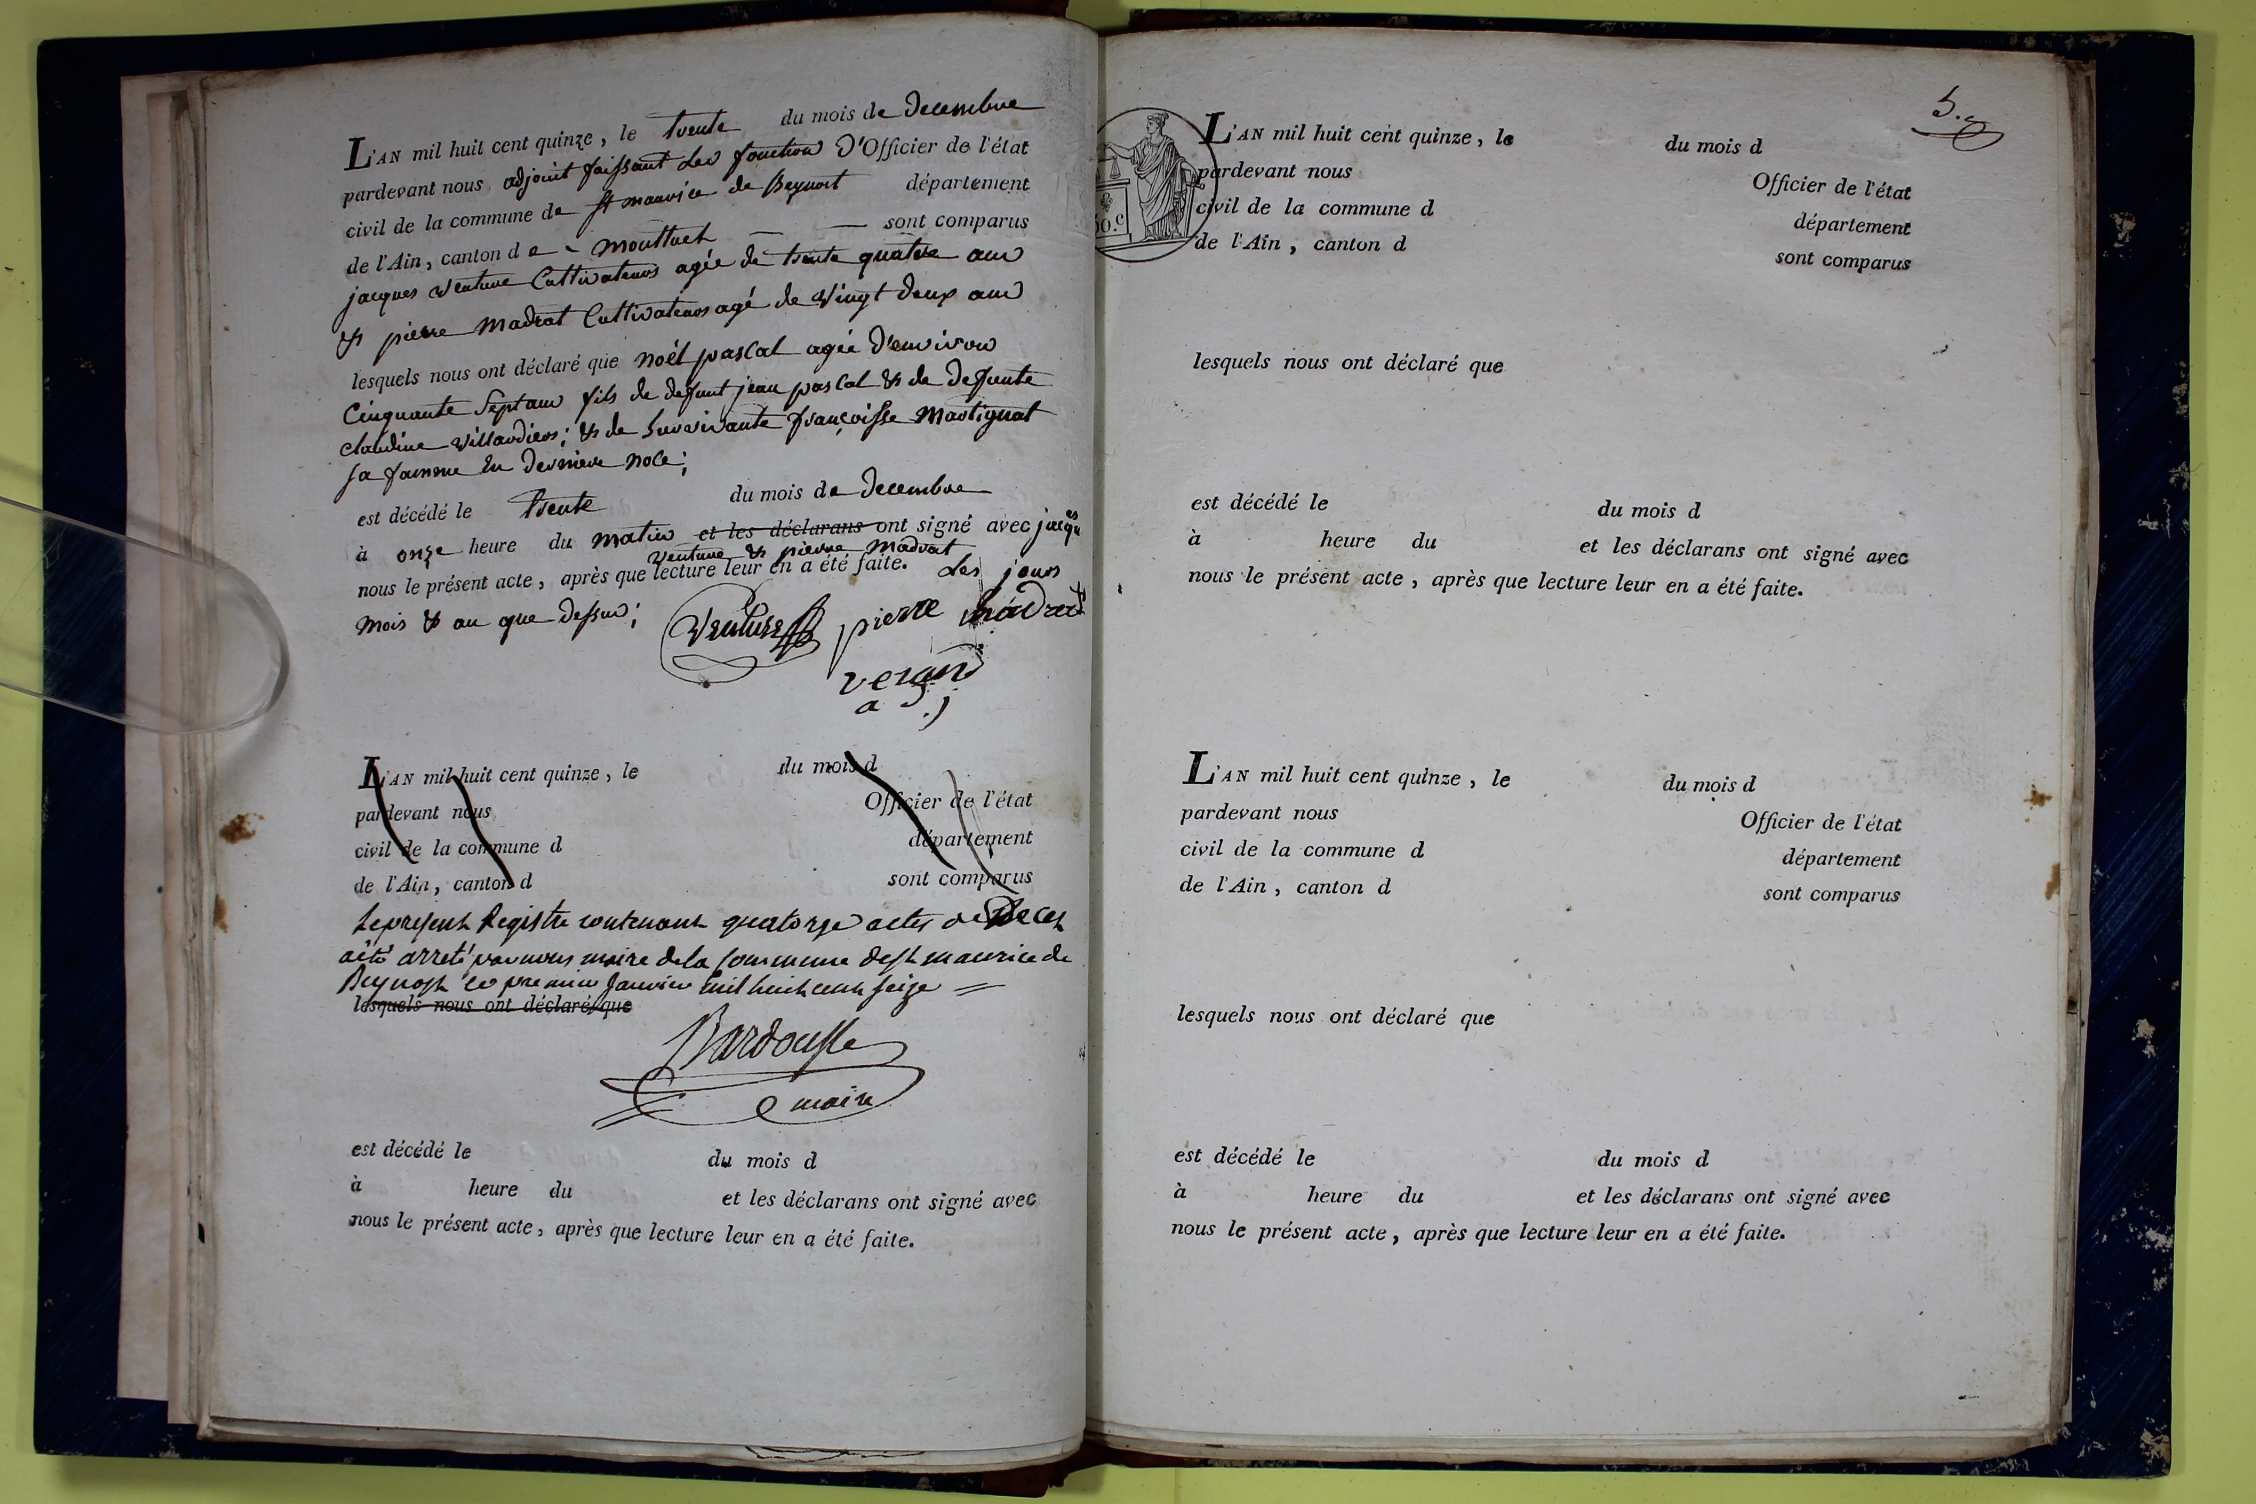 L'AN mil huit cent quinze, le trente du mois de decembre
pardevant nous adjoint faissant les fonction D'Officier de l'état
civil de la commune de st mauvice de Beynost département
de l'Ain, canton d e - Montluel — — sont comparus
jacques Venture Cultivateur agée de trente quatre ans
& pierre Madrat Cultivateur agé de Vingt deux ans
lesquels nous ont déclaré que noël pascal agée d'environ
Cinquante Sept ans fils de defunt jean pascal & de defunte
claudine Villardier; & de survivante françoisse Martignat
sa famme En derniere noce;
est décédé le Trente du mois de decembre
à onze heure du matin et les déclarans ont signé avec jacques
Venture & pierre Madrat
nous le présent acte, après que lecture leur en a été faite. Les jours
mois & an que dessus;
Venture pierre madrat
verand
a j
L'AN mil huit cent quinze, le du mois d
pardevant nous Officier de l'état
civil de la commune d département
de l'Ain, canton d sont comparus
Le present Registre contenant quatorze actes de Deces
a été arreté par nous maire de la Commune de st maurice de
Beynost le premier Janvier mil huit cent seize =
lesquels nous ont déclaré que
Bardousse
maire
est décédé le du mois d
à heure du et les déclarans ont signé avec
nous le présent acte, après que lecture leur en a été faite.
5.e
50.c
L'AN mil huit cent quinze, le du mois d
pardevant nous Officier de l'état
civil de la commune d département
de l'Ain, canton d sont comparus
lesquels nous ont déclaré que
est décédé le du mois d
à heure du et les déclarans ont signé avec
nous le présent acte, après que lecture leur en a été faite.
L'AN mil huit cent quinze, le du mois d
pardevant nous Officier de l'état
civil de la commune d département
de l'Ain, canton d sont comparus
lesquels nous ont déclaré que
est décédé le du mois d
à heure du et les déclarans ont signé avec
nous le présent acte, après que lecture leur en a été faite.